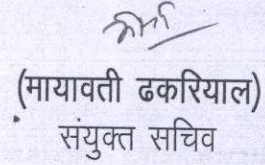 (मायावती ढकरियाल)
संयुक्त सचिव